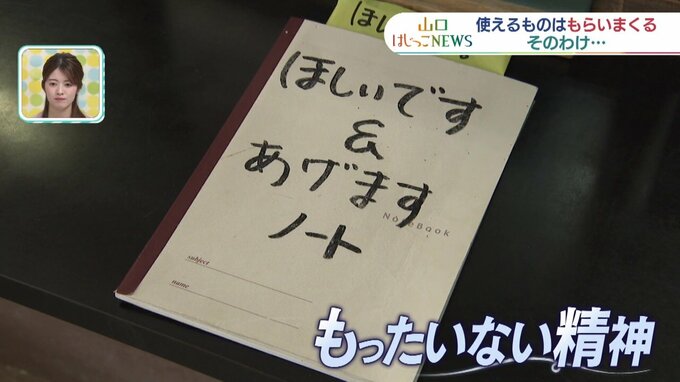 山口
はじっこNEWS
使えるものはもらいまくる
そのわけ…
ほしいです
&
あげます
ノート
NoteBook
subject
name
もったいない精神